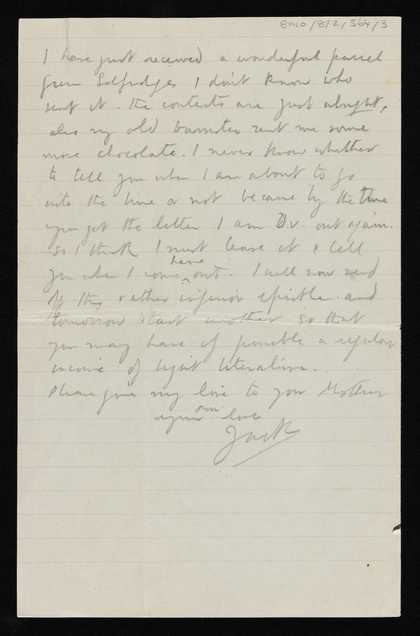 8MO/8/2/364/3
I have just received a wonderful parcel
from Selfridges I don't know who
sent it. The contents are just alright,
also my old barrister sent me some
more chocolate. I never know whether
to tell you when I am about to go
into the line or not because by the time
you get the letter I am D.V. out again.
So I think I must leave it & tell
you when I come have out. I will now send
off this rather inferior epistle and
tomorrow start another so that
you may have if possible a regular
income of light literature.
Please give my love to your Mother
your own love
Jack